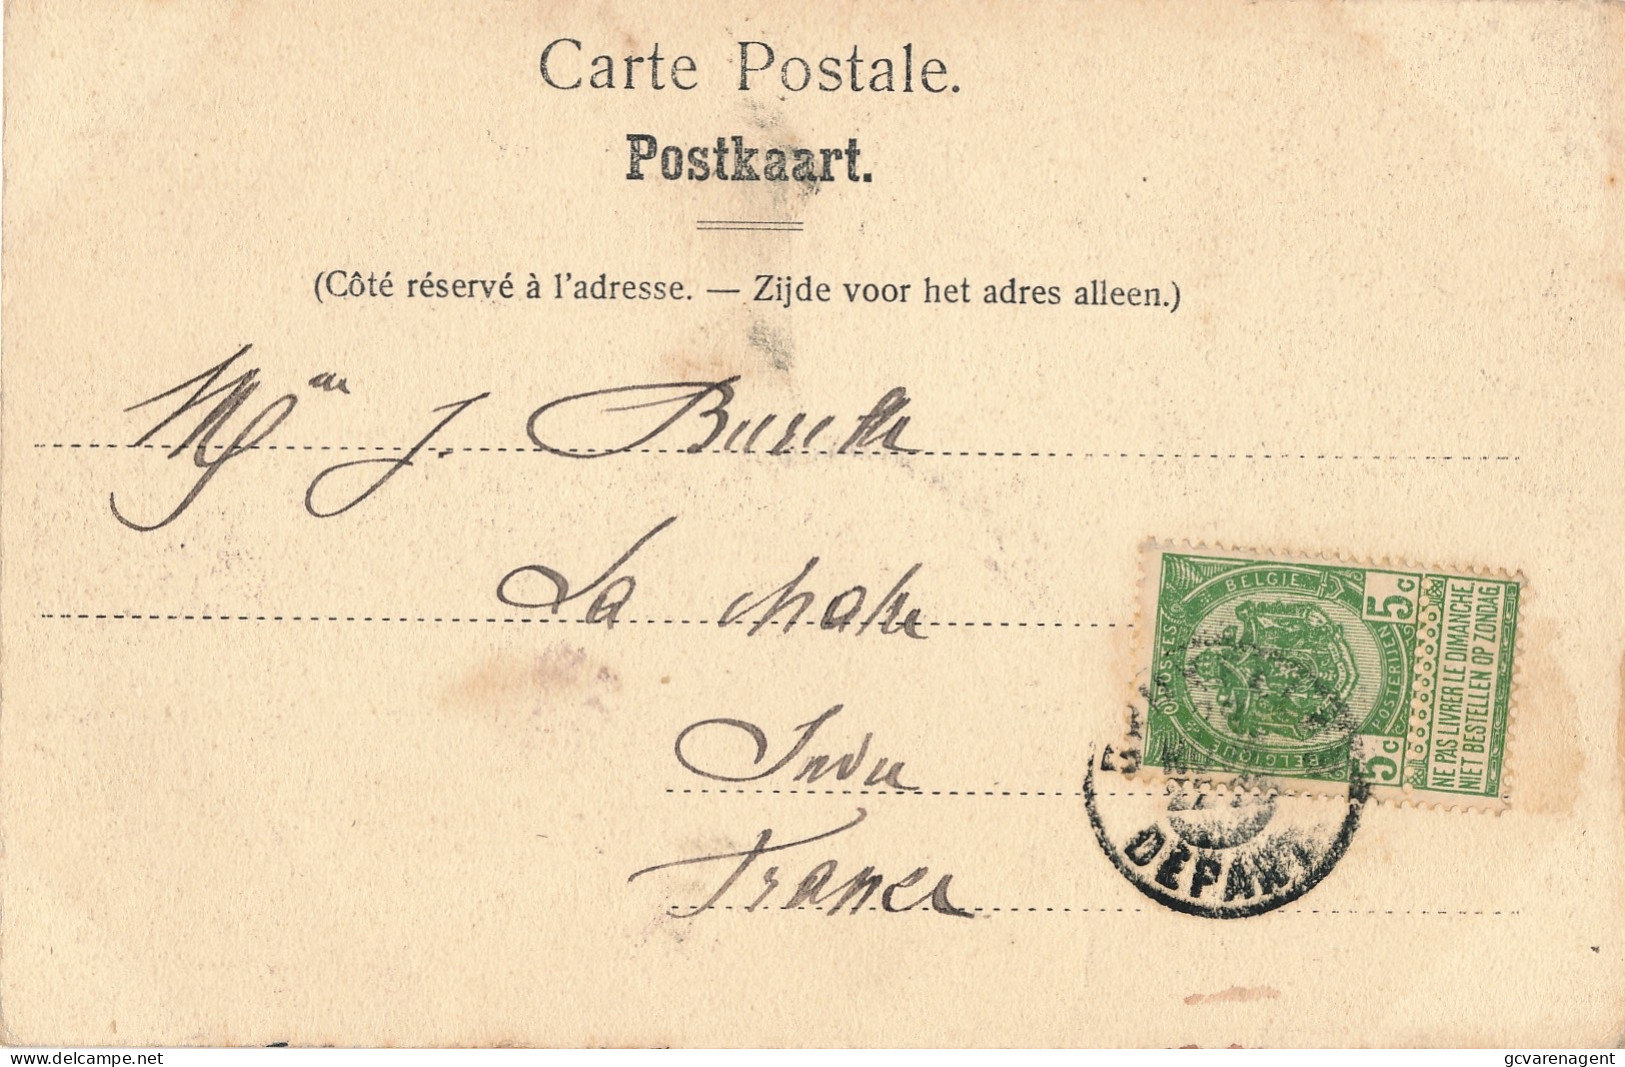 Carte Postale.
Postkaart.
(Côté réservé à l'adresse. — Zijde voor het adres alleen.)
J.
La
Indre
France
BELGIE
POSTERIJEN
POSTES
BELGIQUE
5c
5c
NE PAS LIVRER LE DIMANCHE.
NIET BESTELLEN OP ZONDAG
DEPART
delcampe.net
gcvarenagent